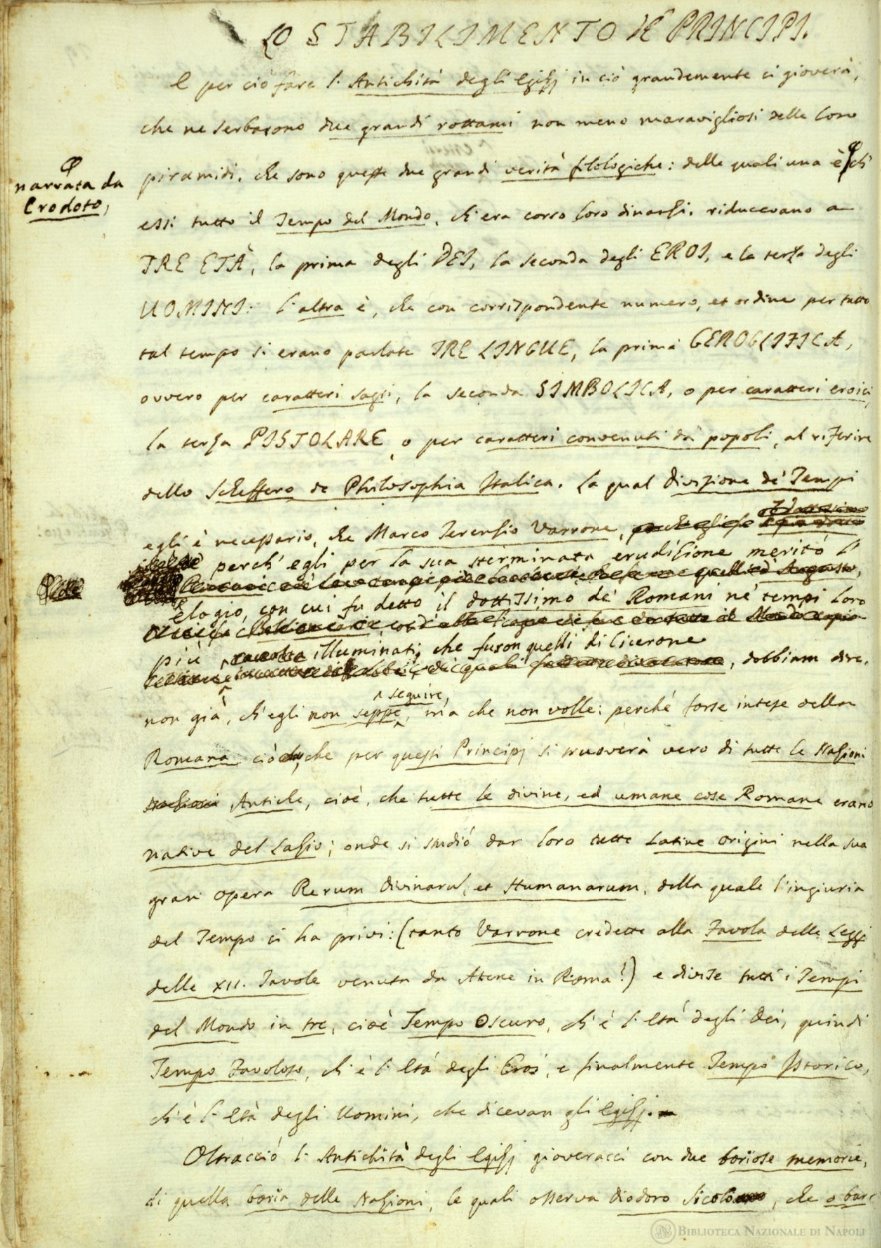 LO STABILIMENTO DE' PRINCIPJ.
E per ciò fare l'Antichità degli Egizj in ciò grandemente ci gioverà,
che ne serbarono due grandi rottami non meno maravigliosi delle loro
piramidi, che sono queste due grandi verità filologiche: delle quali una è ch'
narrata da
Erodoto,
essi tutto il Tempo del Mondo, ch'era corso loro dinanzi, riducevano a
TRE ETÀ, la prima degli DEI, la seconda degli EROI, e la terza degli
UOMINI: l'altra è, che con corrispondente numero, et ordine per tutto
tal tempo si erano parlate TRE LINGUE, la prima GEROGLIFICA,
ovvero per caratteri sagri, la seconda SIMBOLICA, o per caratteri eroici,
la terza PISTOLARE, o per caratteri convenuti da' popoli, al riferire
dello Scheffero de Philosophia Italica. La qual divisione de' Tempi
egli è necessario, che Marco Terenzio Varrone,
perch'egli per la sua sterminata erudizione meritò l'
Elogio, con cui fu detto il dottissimo de' Romani ne' tempi loro
più illuminati, che furon quelli di Cicerone
, dobbiam dire,
non già, ch'egli non seppe seguire, ma che non volle: perchè forse intese della
Romana ciò, che per questi Principj si truoverà vero di tutte le Nazioni
Antiche, cioè, che tutte le divine, ed umane cose Romane erano
native del Lazio; onde si studiò dar loro tutte Latine origini nella sua
gran opera Rerum Divinarum, et Humanarum, della quale l'ingiuria
del Tempo ci ha privi: (tanto Varrone credette alla Favola delle Leggi
delle XII. Tavole venuta da Atene in Roma!) e divise tutti i Tempi
del Mondo in tre, cioè Tempo Oscuro, ch'è l'Età degli Dei, quindi
Tempo Favoloso, ch'è l'Età degli Eroi, e finalmente Tempo Istorico,
ch'è l'Età degli Uomini, che dicevan gli Egizj.
Oltracciò l'Antichità degli Egizj gioveracci con due boriose memorie,
di quella boria delle Nazioni, le quali osserva Diodoro Sicolo, che o bar-
BIBLIOTECA NAZIONALE DI NAPOLI